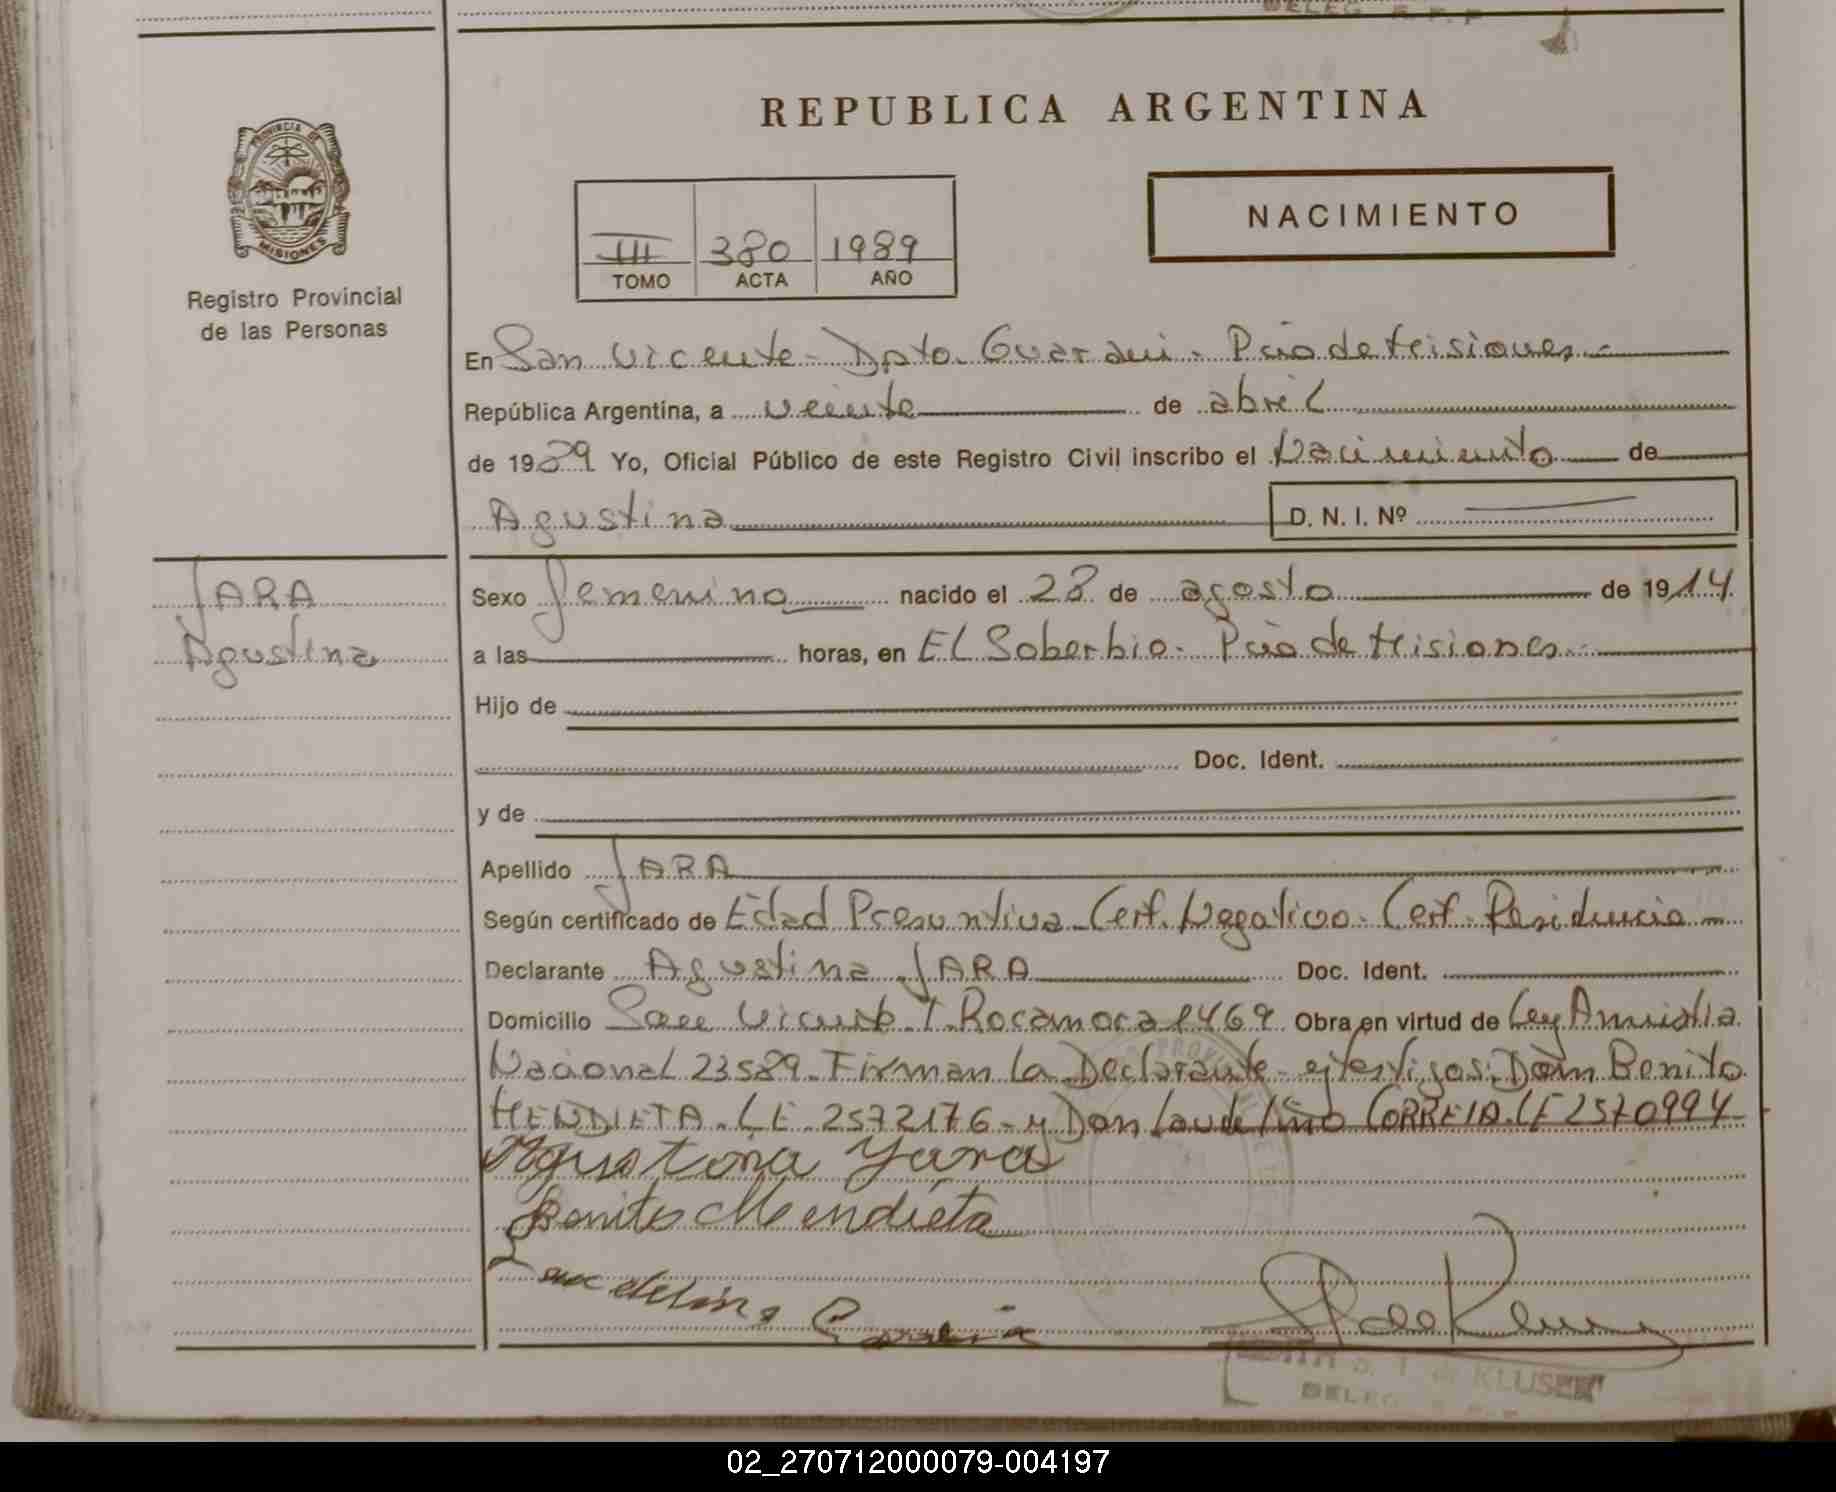 REPUBLICA ARGENTINA
PROVINCIA DE
MISIONES
Registro Provincial
de las Personas
III 380 1989
TOMO ACTA AÑO
NACIMIENTO
En San Vicente - Dpto. Guarani - Pcia de Misiones -
República Argentina, a veinte de abril
de 1989 Yo, Oficial Público de este Registro Civil inscribo el Nacimiento de
Agustina D. N. I. Nº
JARA
Agustina
Sexo femenino nacido el 28 de agosto de 1914
a las horas, en El Soberbio - Pcia de Misiones -
Hijo de
Doc. Ident.
y de
Apellido JARA
Según certificado de Edad Presuntiva - Cert. Negativo - Cert. Residencia
Declarante Agustina JARA Doc. Ident.
Domicilio San Vicente T. Rocamora 1469 Obra en virtud de Ley Amnistia
Nacional 23589 - Firman la Declarante - y testigos: Don Benito
MENDIETA - LE 2572176 - y Don Laudelino CORREIA. LE 2570994
Agustina Yara
Benito Mendieta
KLUSEK
DELEG. R. P. P
02_270712000079-004197